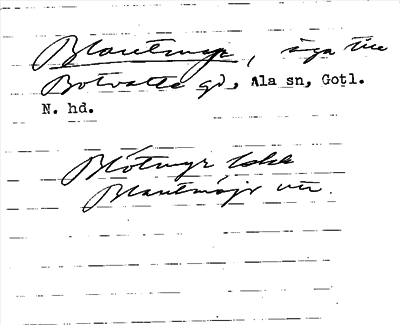 Blautmyr, äga till
Botvatte gd, Ala sn, Gotl.
N. hd.
Blötmyr
Blautmöjr